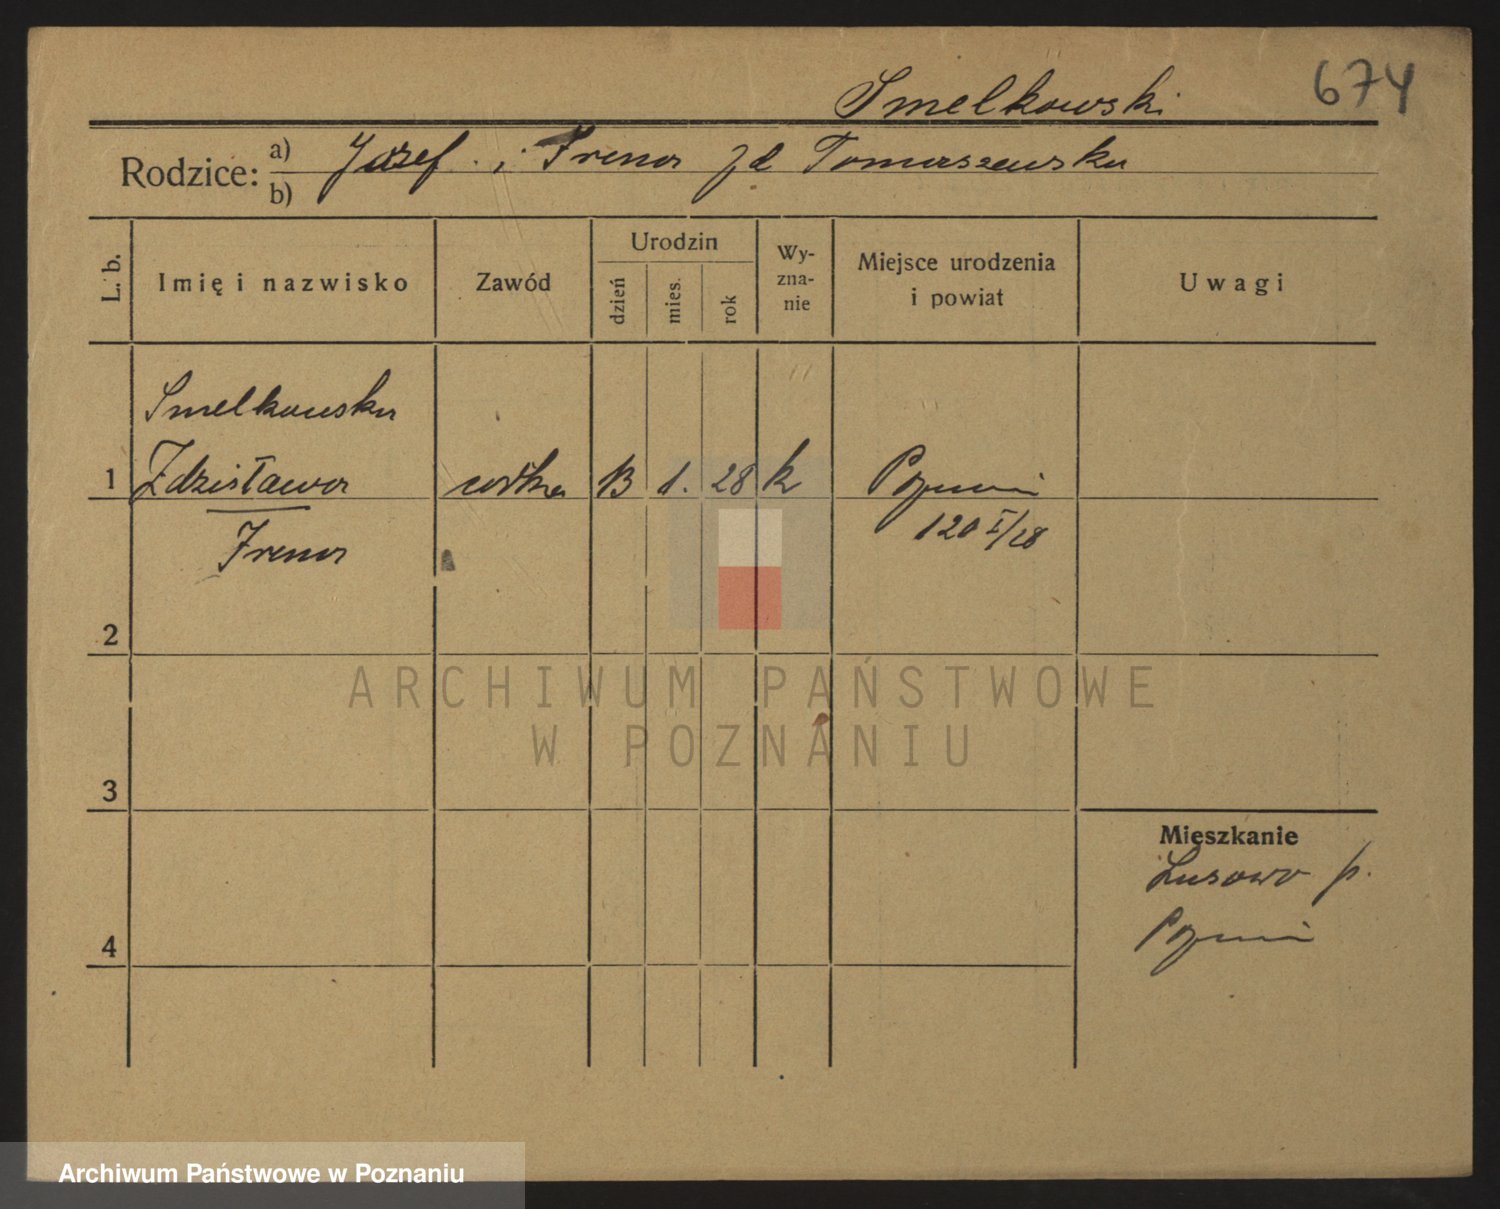 674
Smelkowski
Rodzice: a) b) Józef i Irena zd Tomaszewska
L. b.
Imię i nazwisko
Zawód
Urodzin
dzień
mies.
rok
Wy-
zna-
nie
Miejsce urodzenia
i powiat
Uwagi
Smelkowska
1 Zdzisława córka 13 1. 28 k Poznań
Irena 120 I/28
2
3
4
Mieszkanie
Lusowo p.
Poznań
ARCHIWUM PAŃSTWOWE
W POZNANIU
Archiwum Państwowe w Poznaniu